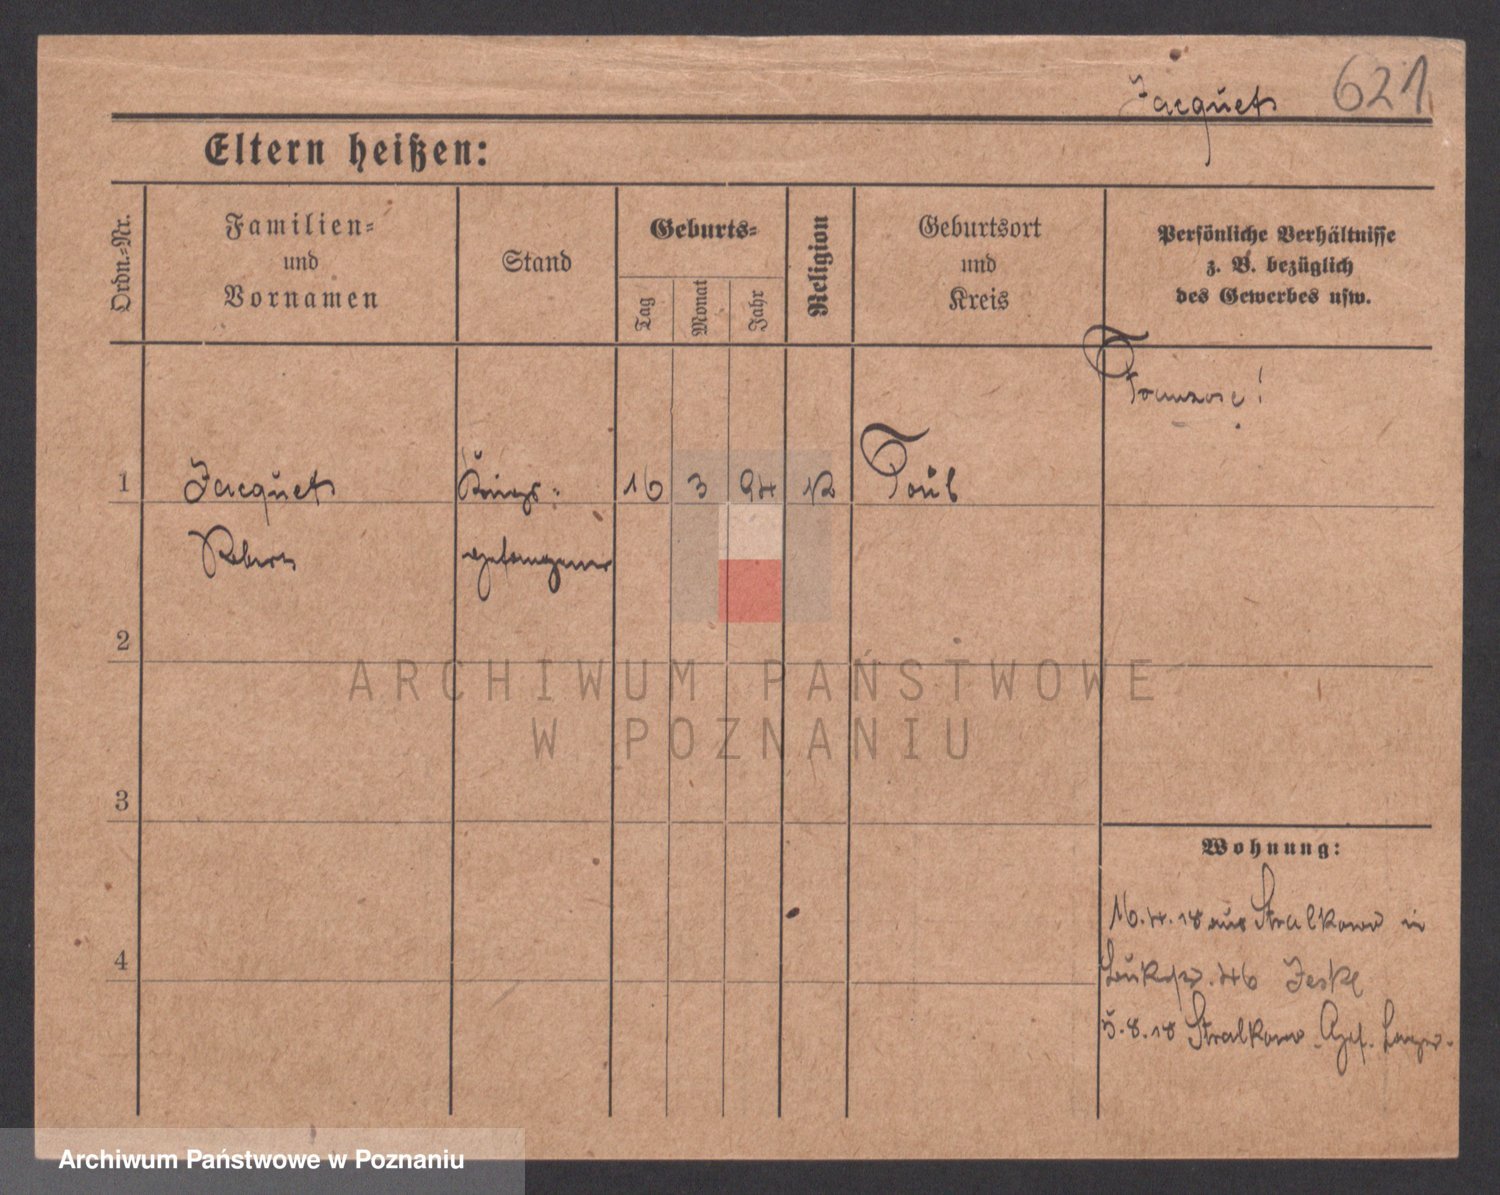 Jacquet 621
Eltern heißen:
Ordn.-Nr.
Familien-
und
Vornamen
Stand
Geburts-
Tag
Monat
Jahr
Religion
Geburtsort
und
Kreis
Persönliche Verhältnisse
z. B. bezüglich
des Gewerbes usw.
Franzose!
1 Jacquet Kriegs- 16 3 94 K
Robert gefangener
2
ARCHIWUM PAŃSTWOWE
W POZNANIU
3
Wohnung:
16.4.18 aus Stralkowo in
46 Jeske
4
5.8.18 Stralkowo Gef. Lager.
Archiwum Państwowe w Poznaniu